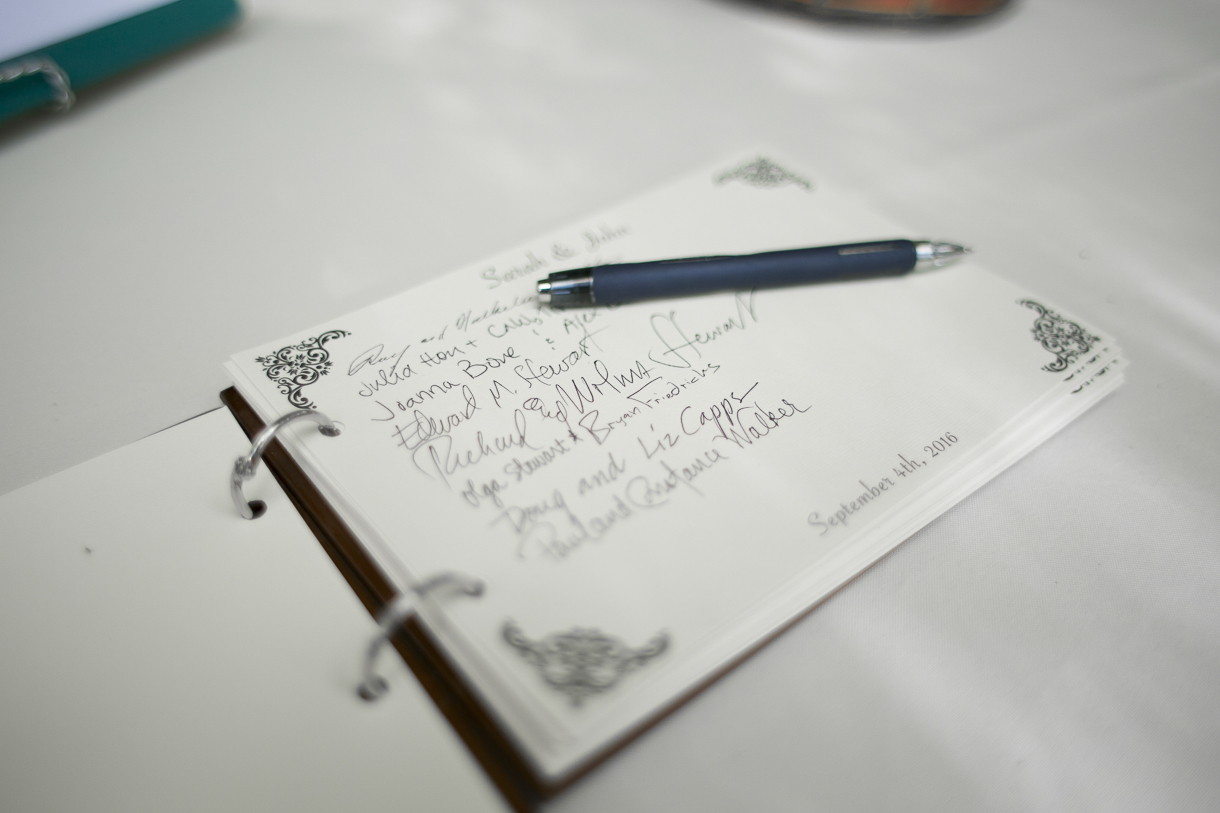 Sarah &
and
Julia Hou + Caleb
Joanna Bove & Alex
Edward M. Stewart
Richard and Wilma Stewart
Olga Stewart & Bryan Friedrichs
Doug and Liz Capps
Paul and Constance Walker
September 4th, 2016